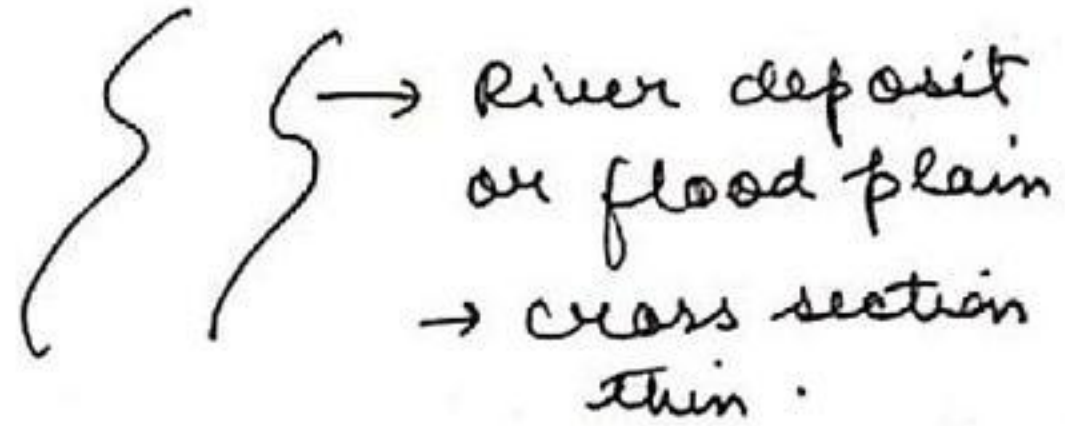 → River deposit
or flood plain
→ cross section
thin .